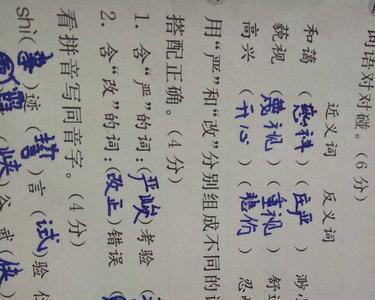 词语对对碰。(6分)
近义词 反义词
和蔼 (慈祥) (庄严) 渺小
藐视 (蔑视) (重视) 舒
高兴 (开心) (悲伤) 忍
用“严”和“改”分别组成不同的
搭配正确。(4分)
1. 含“严”的词:(严峻)考验
2. 含“改”的词:(改正)错误
看拼音写同音字。(4分)
shì(事)迹 (誓)言 (试)验
(峡)谷 武(侠)